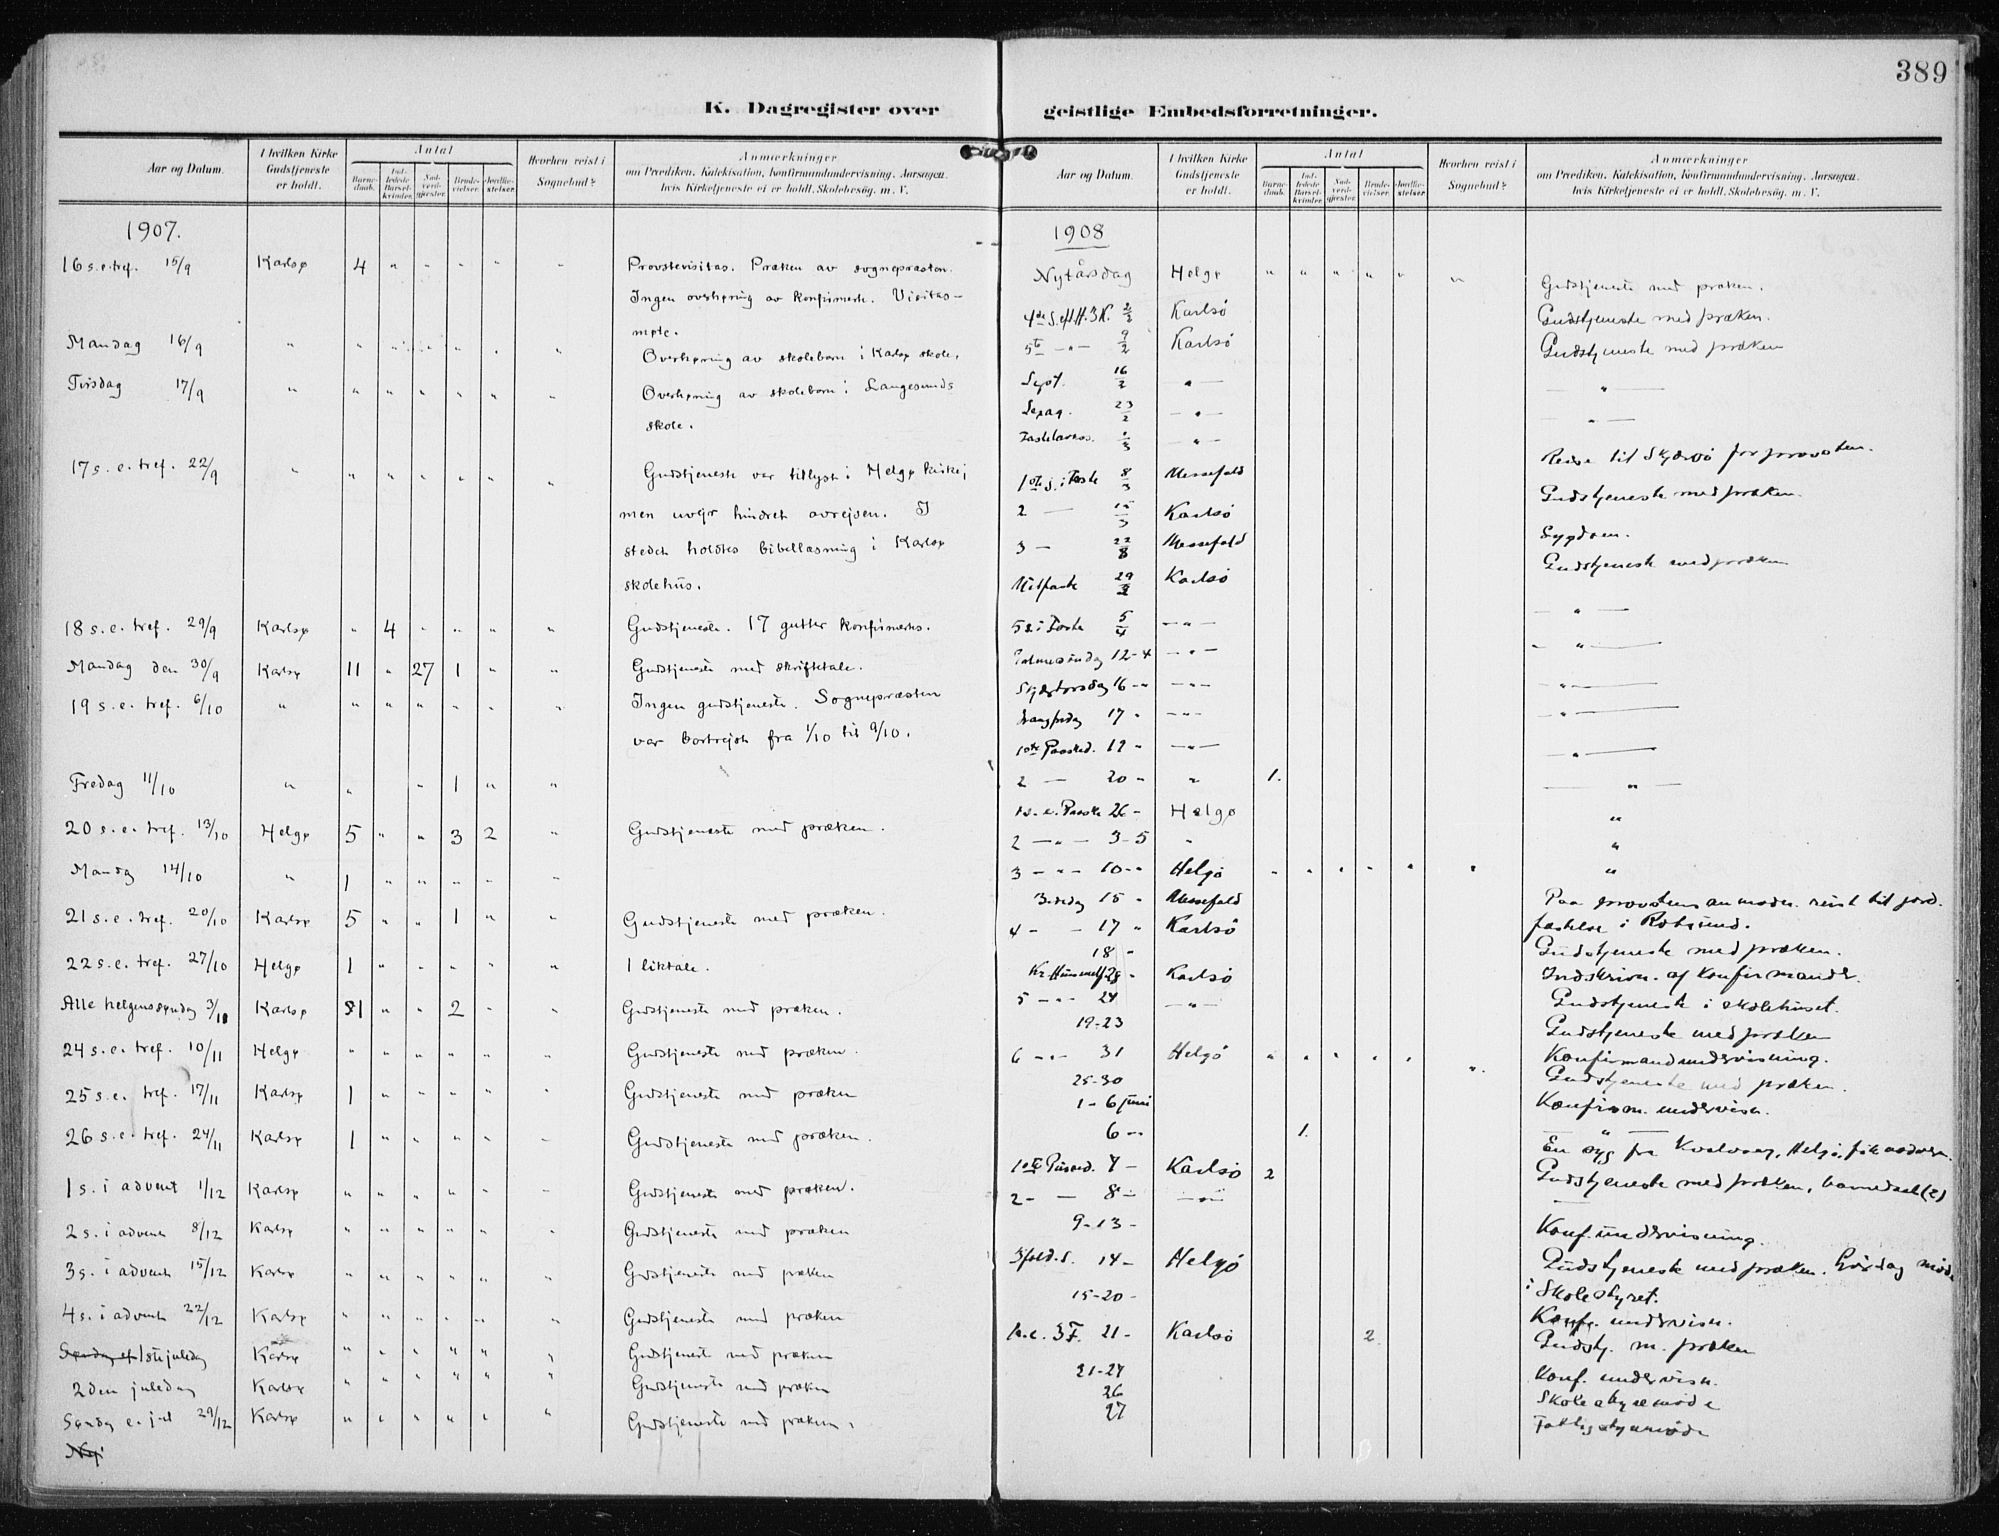 389
K. Dagregister over
Aar og Datum.
I hvilken Kirke Gudstjeneste er holdt.
Antal
Barnedaab.
Indledede Barselkvinder.
Nadverdgjester.
Brudevielser.
Jordfæstelser.
Hvorhen reist i Sognebud?
Anmærkninger
om Prædiken, Katekisation, Konfirmandundervisning, Aarsagen,
hvis Kirketjeneste ei er holdt, Skolebesøg. m. V.
1907.
16 s.e. tref. 15/9 Karlsø 4 " " " " " Provstevisitas. Præken av sognepræsten.
Ingen overhøring av konfirmerte. Visitas-
møte.
Mandag 16/9 " " " " " " " Overhøring av skolebørn i Karlsø skole.
Tirsdag 17/9 " " " " " " " Overhøring av skolebørn i Langesunds
skole.
17 s. e. tref. 22/9 " " " " " " " Gudstjeneste var tillyst i Helgø kirke;
men uvejr hindret avrejsen. I
stedet holdtes bibellæsning i Karlsø
skolehus.
18 s. e. tref. 29/9 Karlsø " 4 " " " " Gudstjeneste. 17 gutter konfirmertes.
Mandag den 30/9 Karlsø 11 " 27 1 " " Gudstjeneste med skriftetale.
19 s. e. tref. 6/10 " " " " " " " Ingen gudstjeneste. Sognepræsten
var bortrejst fra 1/10 til 9/10.
Fredag 11/10 " " " 1 " "
20 s. e. tref. 13/10 Helgø 5 " " 3 2 " Gudstjeneste med præken.
Mandag 14/10 " 1 " " " "
21 s. e. tref. 20/10 Karlsø 5 " " 1 " " Gudstjeneste med præken.
22 s. e. tref. 27/10 Helgø 1 " " " " " 1 liktale.
Alle helgenssøndag 3/11 Karlsø 81 " " 2 " " Gudstjeneste med præken.
24 s. e. tref. 10/11 Helgø " " " " " " Gudstjeneste med præken.
25 s. e. tref. 17/11 Karlsø 1 " " " " " Gudstjeneste med præken
26 s. e. tref. 24/11 Karlsø 1 " " " " " Gudstjeneste med præken.
1 s. i advent 1/12 Karlsø " " " " " " Gudstjeneste med præken.
2 s. i advent 8/12 Karlsø " " " " " " Gudstjeneste med præken
3 s. i advent 15/12 Karlsø " " " " " " Gudstjeneste med præken
4 s. i advent 22/12 Karlsø " " " " " " Gudstjeneste med præken
Søndag ef 1ste juledag Karlsø " " " " " " Gudstjeneste med præken
2den juledag Karlsø " " " " " " Gudstjeneste med præken
Søndag e. jul 29/12 Karlsø " " " " " " Gudstjeneste med præken.
geistlige Embedsforretninger.
Aar og Datum.
I hvilken Kirke Gudstjeneste er holdt.
Antal
Barnedaab.
Indledede Barselkvinder.
Nadverdgjester.
Brudevielser.
Jordfæstelser.
Hvorhen reist i Sognebud?
Anmærkninger
om Prædiken, Katekisation, Konfirmandundervisning, Aarsagen,
hvis Kirketjeneste ei er holdt, Skolebesøg. m. V.
1908
Nytårsdag Helgø " " " " " " Gudstjeneste med præken.
4de S. eft H. 3 K. 2/2 Karlsö Gudstjeneste med præken.
5te - " - 9/2 Karlsö Gudstjeneste med præken
Sept. 16/2 - " - - " -
Sexag. 23/2 - " - - " -
Fastelavnss. 1/3 - " - Reise til Skjærvö for provsten.
1ste s. i Faste 8/3 Messefald Gudstjeneste med præken.
2 - 15/3 Karlsö Sygdom.
3 - 22/3 Messefald Gudstjeneste med præken
Midfaste 29/3 Karlsö - " -
5 s i Faste 5/4 - " - - " -
Palmesöndag 12-4 - " - - " -
Skjærtorsdag 16 - " - " - - " -
Langfredag 17 " - " - - " -
1ste Paasked. 19 - - " - - " -
2 - 20 - " 1. - " -
1 s. e. Paaske 26 - Helgø "
2 - " - 3-5 " "
3 - " - 10 - " Helgö " " " " " " Paa provstens anmodn. reist til jord-
Fredag 15 " Messefald fæstelse i
4 - - 17 " Karlsö Gudstjeneste med præken.
18 " Indskrivn. af konfirmander.
Kr. Himmelf 28 - Karlsö Gudstjeneste i skolehuset.
5 - " - 24 - " - Gudstjeneste med præken
19-23 Konfirmandundervisning.
6 - " - 31 Helgö " " " " " " Gudstjeneste med præken.
25-30 Konfirm. undervisn.
1-6 juni - " -
6 - " 1. En syg fra Kvalvaag, Helgö, fik
1ste Pinsed. 7 - Karlsö 2 Gudstjeneste med præken, barnedaab (2)
2 - - 8 - - " - -
9-13 - Konf. undervisning.
3fold. s. 14 - Helgö Gudstjeneste med præken. Lördag möde
15-20 - i Skolestyret.
Konf. undervisn.
1 s. e. 3 F. 21 - Karlsö 2 Gudstj. m. præken
21-27 Konf. undervisn.
26 Skolestyremöde
27 Fattigstyremöde